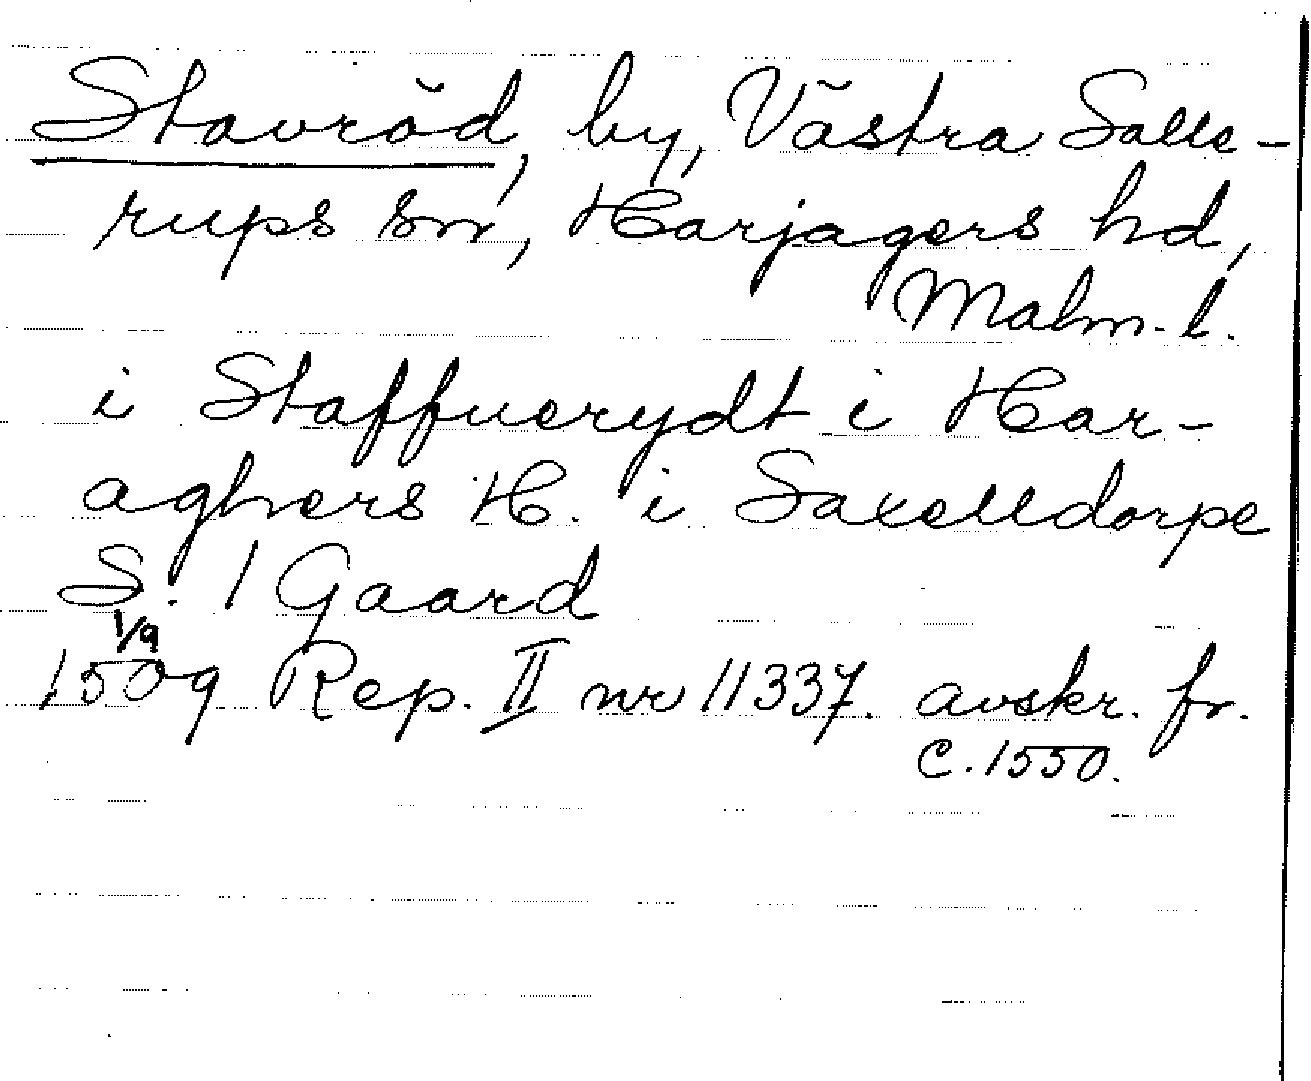 Stavröd, by, Västra Salle-
rups sn, Harjagers hd,
Malm. l.
i Staffuerydt i Har-
aghers H. i Saxelldorpe
S. 1 Gaard
1/9
1509 Rep. II nr 11337. avskr. fr.
c. 1550.